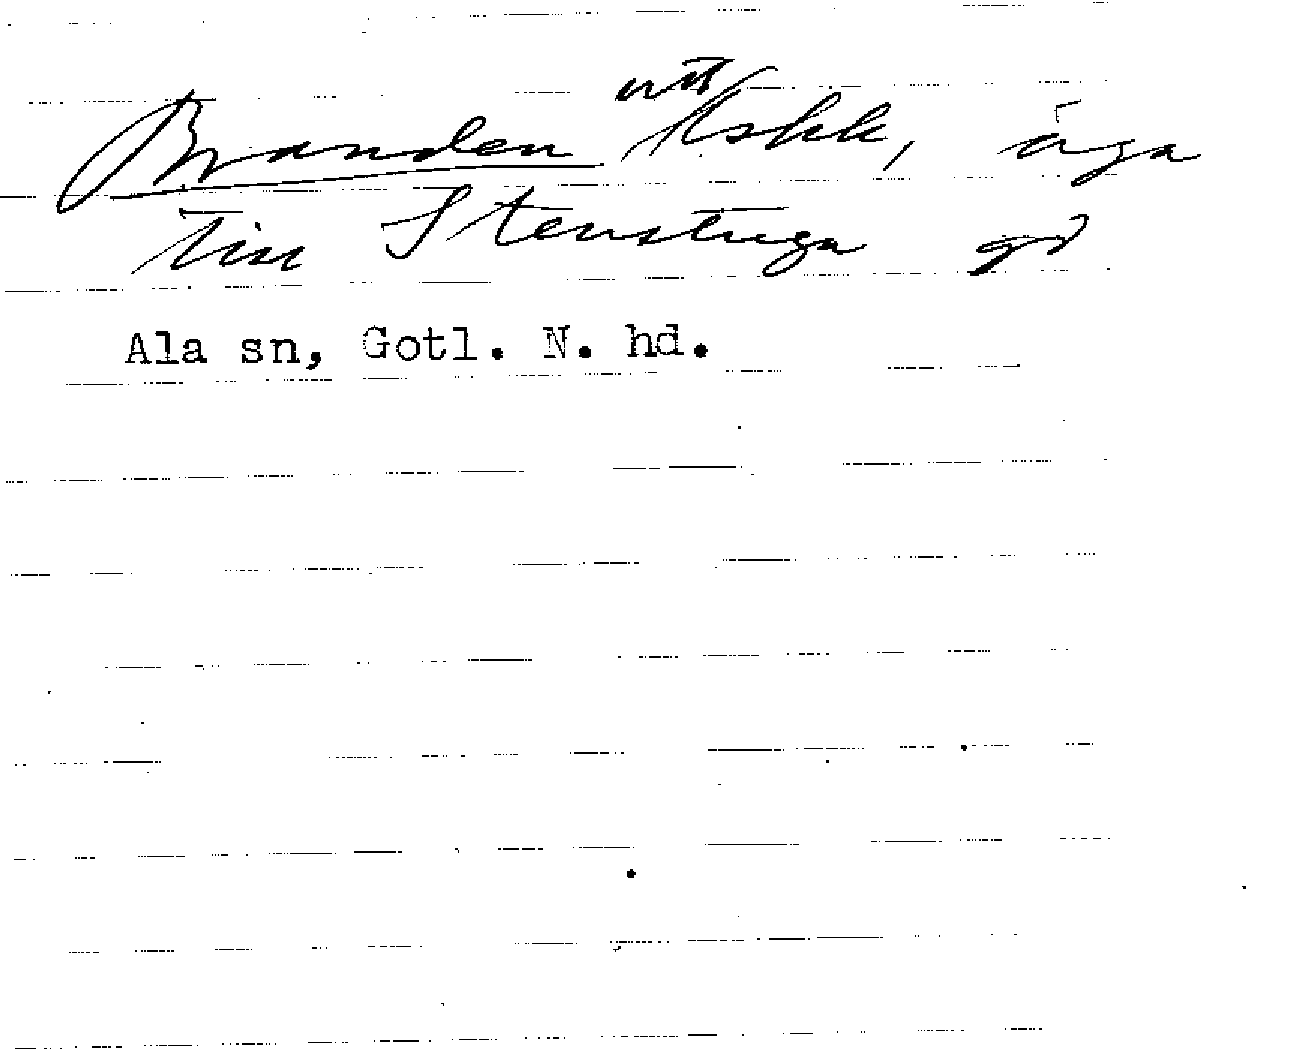 Branden utt Ashk, äga
till Stenstuga gd
Ala sn, Gotl. N. hd.